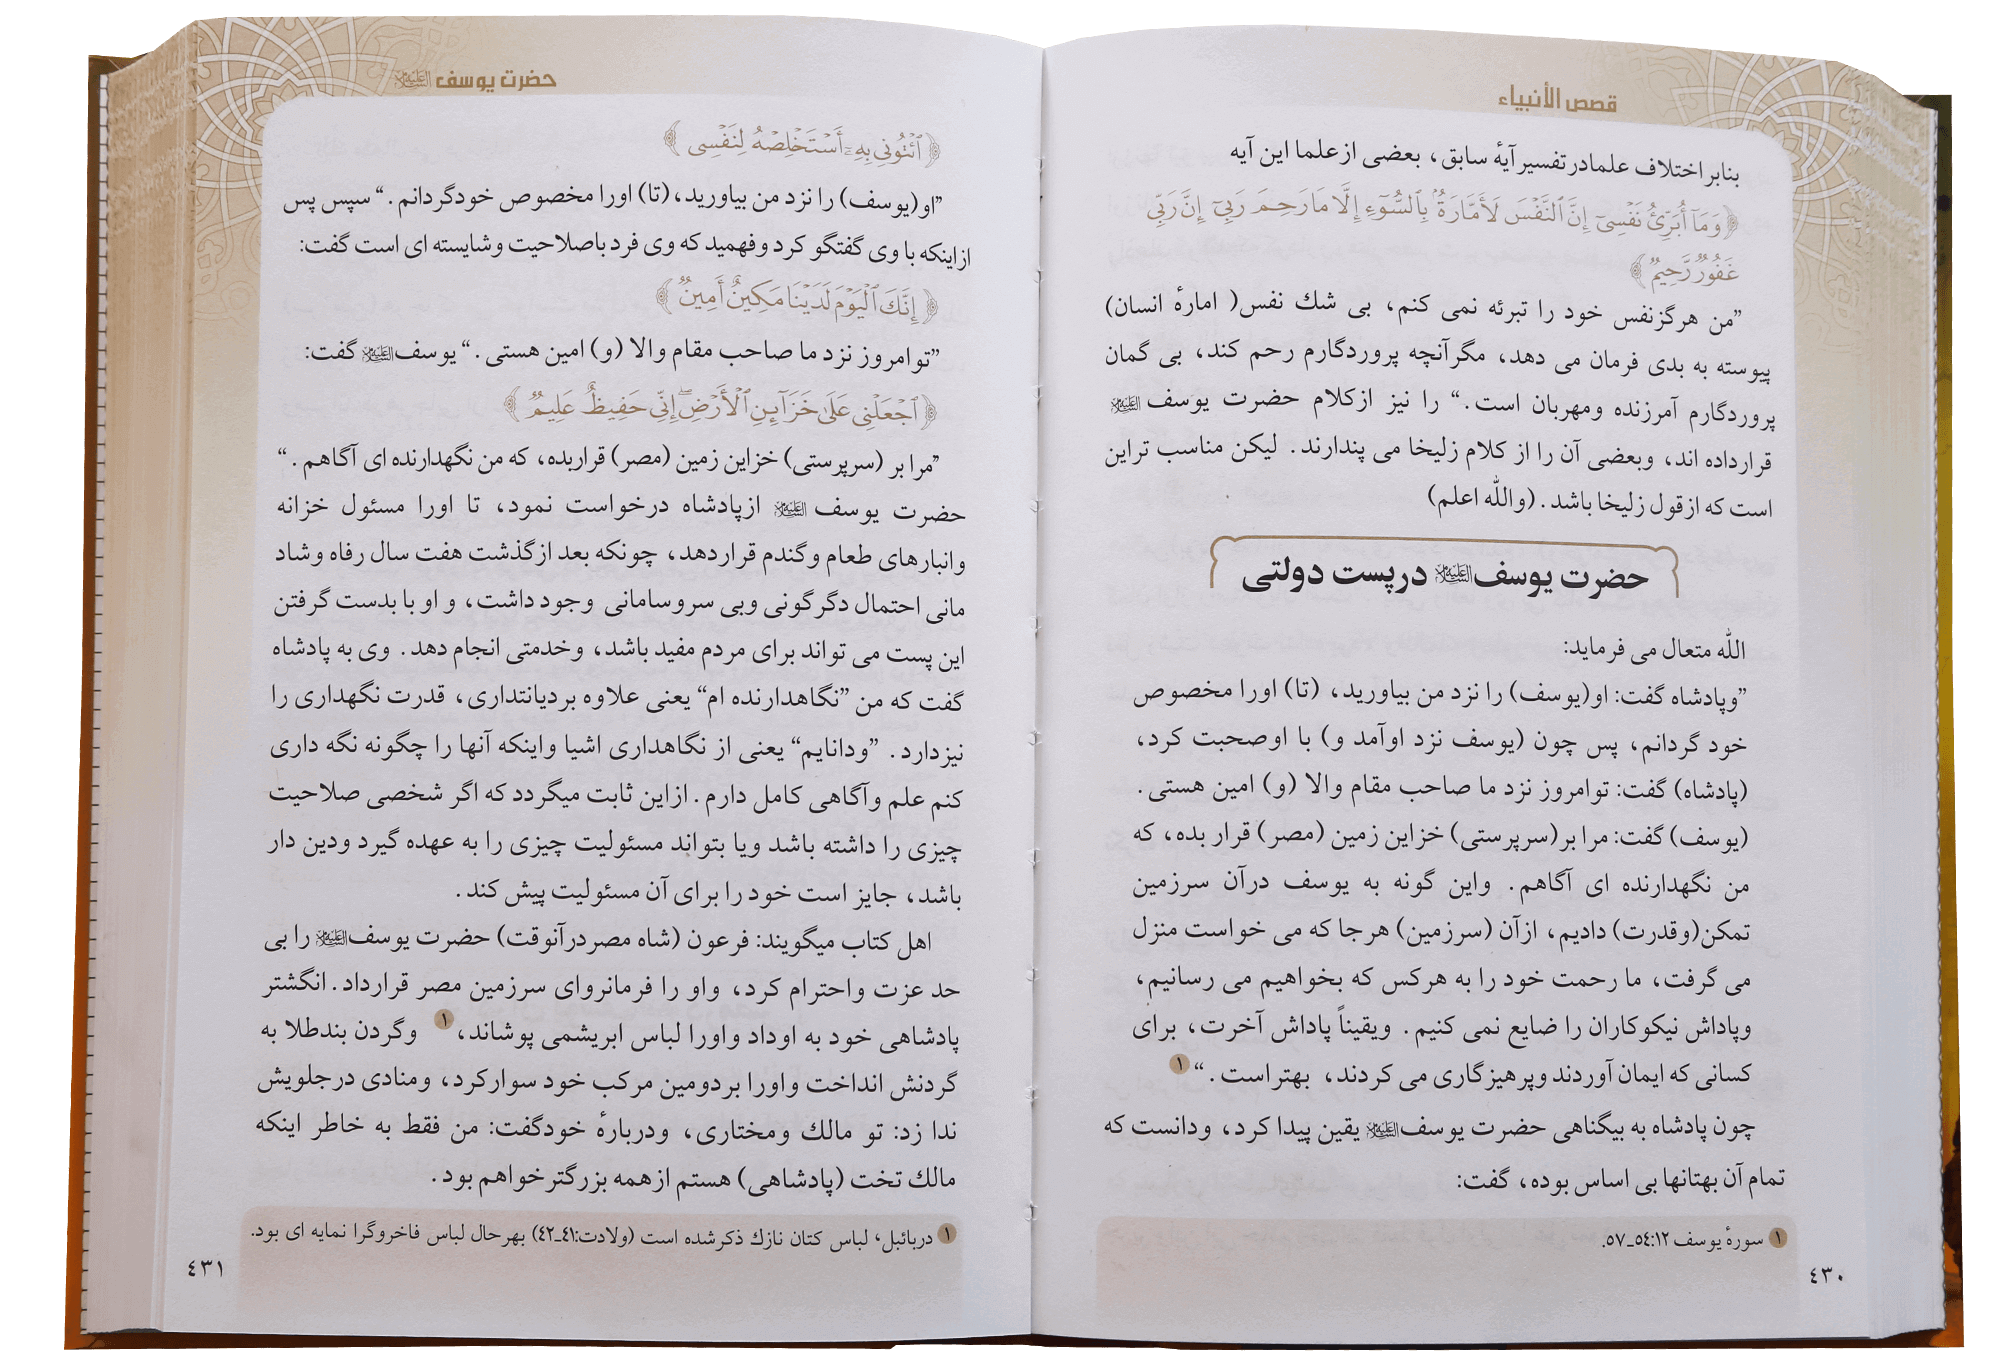 قصص الأنبیاء
بنابر اختلاف علما در تفسیر آیۀ سابق، بعضی از علما این آیه
﴿وَمَآ أُبَرِّئُ نَفۡسِيٓ إِنَّ ٱلنَّفۡسَ لَأَمَّارَةُۢ بِٱلسُّوٓءِ إِلَّا مَا رَحِمَ رَبِّيٓ إِنَّ رَبِّي
غَفُورٞ رَّحِيمٞ﴾
”من هرگز نفس خود را تبرئه نمی کنم، بی شك نفس( امارۀ انسان)
پیوسته به بدی فرمان می دهد، مگر آنچه پروردگارم رحم کند، بی گمان
پروردگارم آمرزنده ومهربان است.“ را نیز از کلام حضرت یوسف علیه السلام
قرارداده اند، وبعضی آن را از کلام زلیخا می پندارند. لیکن مناسب تراین
است که از قول زلیخا باشد. (والله اعلم)
حضرت یوسف علیه السلام درپست دولتی
الله متعال می فرماید:
”وپادشاه گفت: او(یوسف) را نزد من بیاورید، (تا) اورا مخصوص
خود گردانم، پس چون (یوسف نزد اوآمد و) با اوصحبت کرد،
(پادشاه) گفت: توامروز نزد ما صاحب مقام والا (و) امین هستی.
(یوسف) گفت: مرا بر(سرپرستی) خزاین زمین (مصر) قرار بده، که
من نگهدارنده ای آگاهم. واین گونه به یوسف درآن سرزمین
تمکن(وقدرت) دادیم، ازآن (سرزمین) هرجا که می خواست منزل
می گرفت، ما رحمت خود را به هرکس که بخواهیم می رسانیم،
وپاداش نیکوکاران را ضایع نمی کنیم. ویقیناً پاداش آخرت، برای
کسانی که ایمان آوردند وپرهیزگاری می کردند، بهتراست.“ ۱
چون پادشاه به بیگناهی حضرت یوسف علیه السلام یقین پیدا کرد، ودانست که
تمام آن بهتانها بی اساس بوده، گفت:
۱ سورۀ یوسف ۱۲:٥٤-٥۷.
٤۳۰
حضرت یوسف علیه السلام
﴿ٱئۡتُونِي بِهِۦٓ أَسۡتَخۡلِصۡهُ لِنَفۡسِي﴾
”او(یوسف) را نزد من بیاورید، (تا) اورا مخصوص خودگردانم.“ سپس پس
ازاینکه با وی گفتگو کرد وفهمید که وی فرد باصلاحیت وشایسته ای است گفت:
﴿إِنَّكَ ٱلۡيَوۡمَ لَدَيۡنَا مَكِينٌ أَمِينٞ﴾
”توامروز نزد ما صاحب مقام والا (و) امین هستی.“ یوسف علیه السلام گفت:
﴿ٱجۡعَلۡنِي عَلَىٰ خَزَآئِنِ ٱلۡأَرۡضِۖ إِنِّي حَفِيظٌ عَلِيمٞ﴾
”مرا بر (سرپرستی) خزاین زمین (مصر) قراربده، که من نگهدارنده ای آگاهم.“
حضرت یوسف علیه السلام ازپادشاه درخواست نمود، تا اورا مسئول خزانه
وانبارهای طعام وگندم قراردهد، چونکه بعد ازگذشت هفت سال رفاه وشاد
مانی احتمال دگرگونی وبی سروسامانی وجود داشت، و او با بدست گرفتن
این پست می تواند برای مردم مفید باشد، وخدمتی انجام دهد. وی به پادشاه
گفت که من ”نگاهدارنده ام“ یعنی علاوه بردیانتداری، قدرت نگهداری را
نیزدارد. ”ودانایم“ یعنی از نگاهداری اشیا واینکه آنها را چگونه نگه داری
کنم علم وآگاهی کامل دارم. ازاین ثابت میگردد که اگر شخصی صلاحیت
چیزی را داشته باشد ویا بتواند مسئولیت چیزی را به عهده گیرد ودین دار
باشد، جایز است خود را برای آن مسئولیت پیش کند.
اهل کتاب میگویند: فرعون (شاه مصردرآنوقت) حضرت یوسف علیه السلام را بی
حد عزت واحترام کرد، واو را فرمانروای سرزمین مصر قرارداد. انگشتر
پادشاهی خود به اوداد واورا لباس ابریشمی پوشاند، ۱ وگردن بندطلا به
گردنش انداخت واورا بردومین مرکب خود سوارکرد، ومنادی درجلویش
ندا زد: تو مالك ومختاری، ودربارۀ خودگفت: من فقط به خاطر اینکه
مالك تخت (پادشاهی) هستم ازهمه بزرگترخواهم بود.
۱ دربائبل، لباس کتان نازك ذکرشده است (ولادت:٤۱-٤۲) بهرحال لباس فاخروگرا نمایه ای بود.
٤۳۱